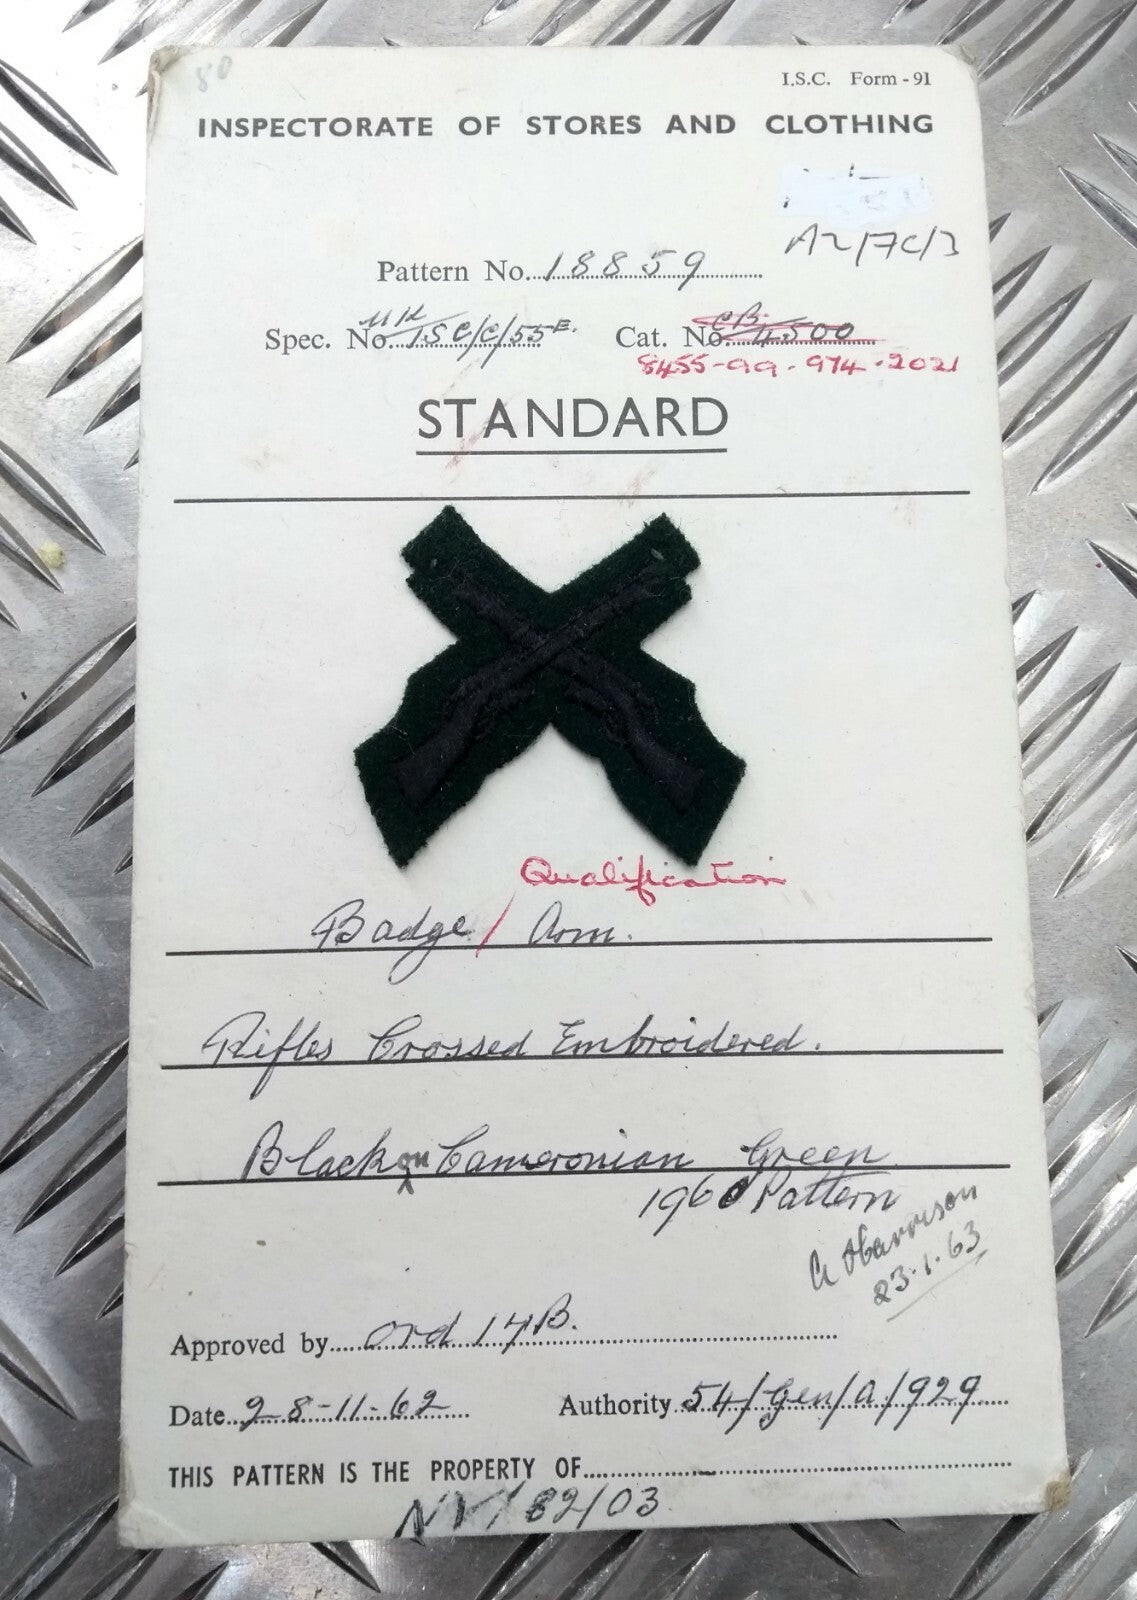 80
I.S.C. Form - 91
INSPECTORATE OF STORES AND CLOTHING
A2/7C/3
Pattern No. 18859
Spec. No. UK/ISC/C/55E. Cat. No. CB. 4500
8455-99-974-2021
STANDARD
Qualification
Badge / Arm.
Rifles Crossed Embroidered.
Black on Cameronian Green
1960 Pattern
Harrison
23.1.63
Approved by Ord 17B.
Date 28-11-62 Authority 54/Gen/a/929
THIS PATTERN IS THE PROPERTY OF
82/03